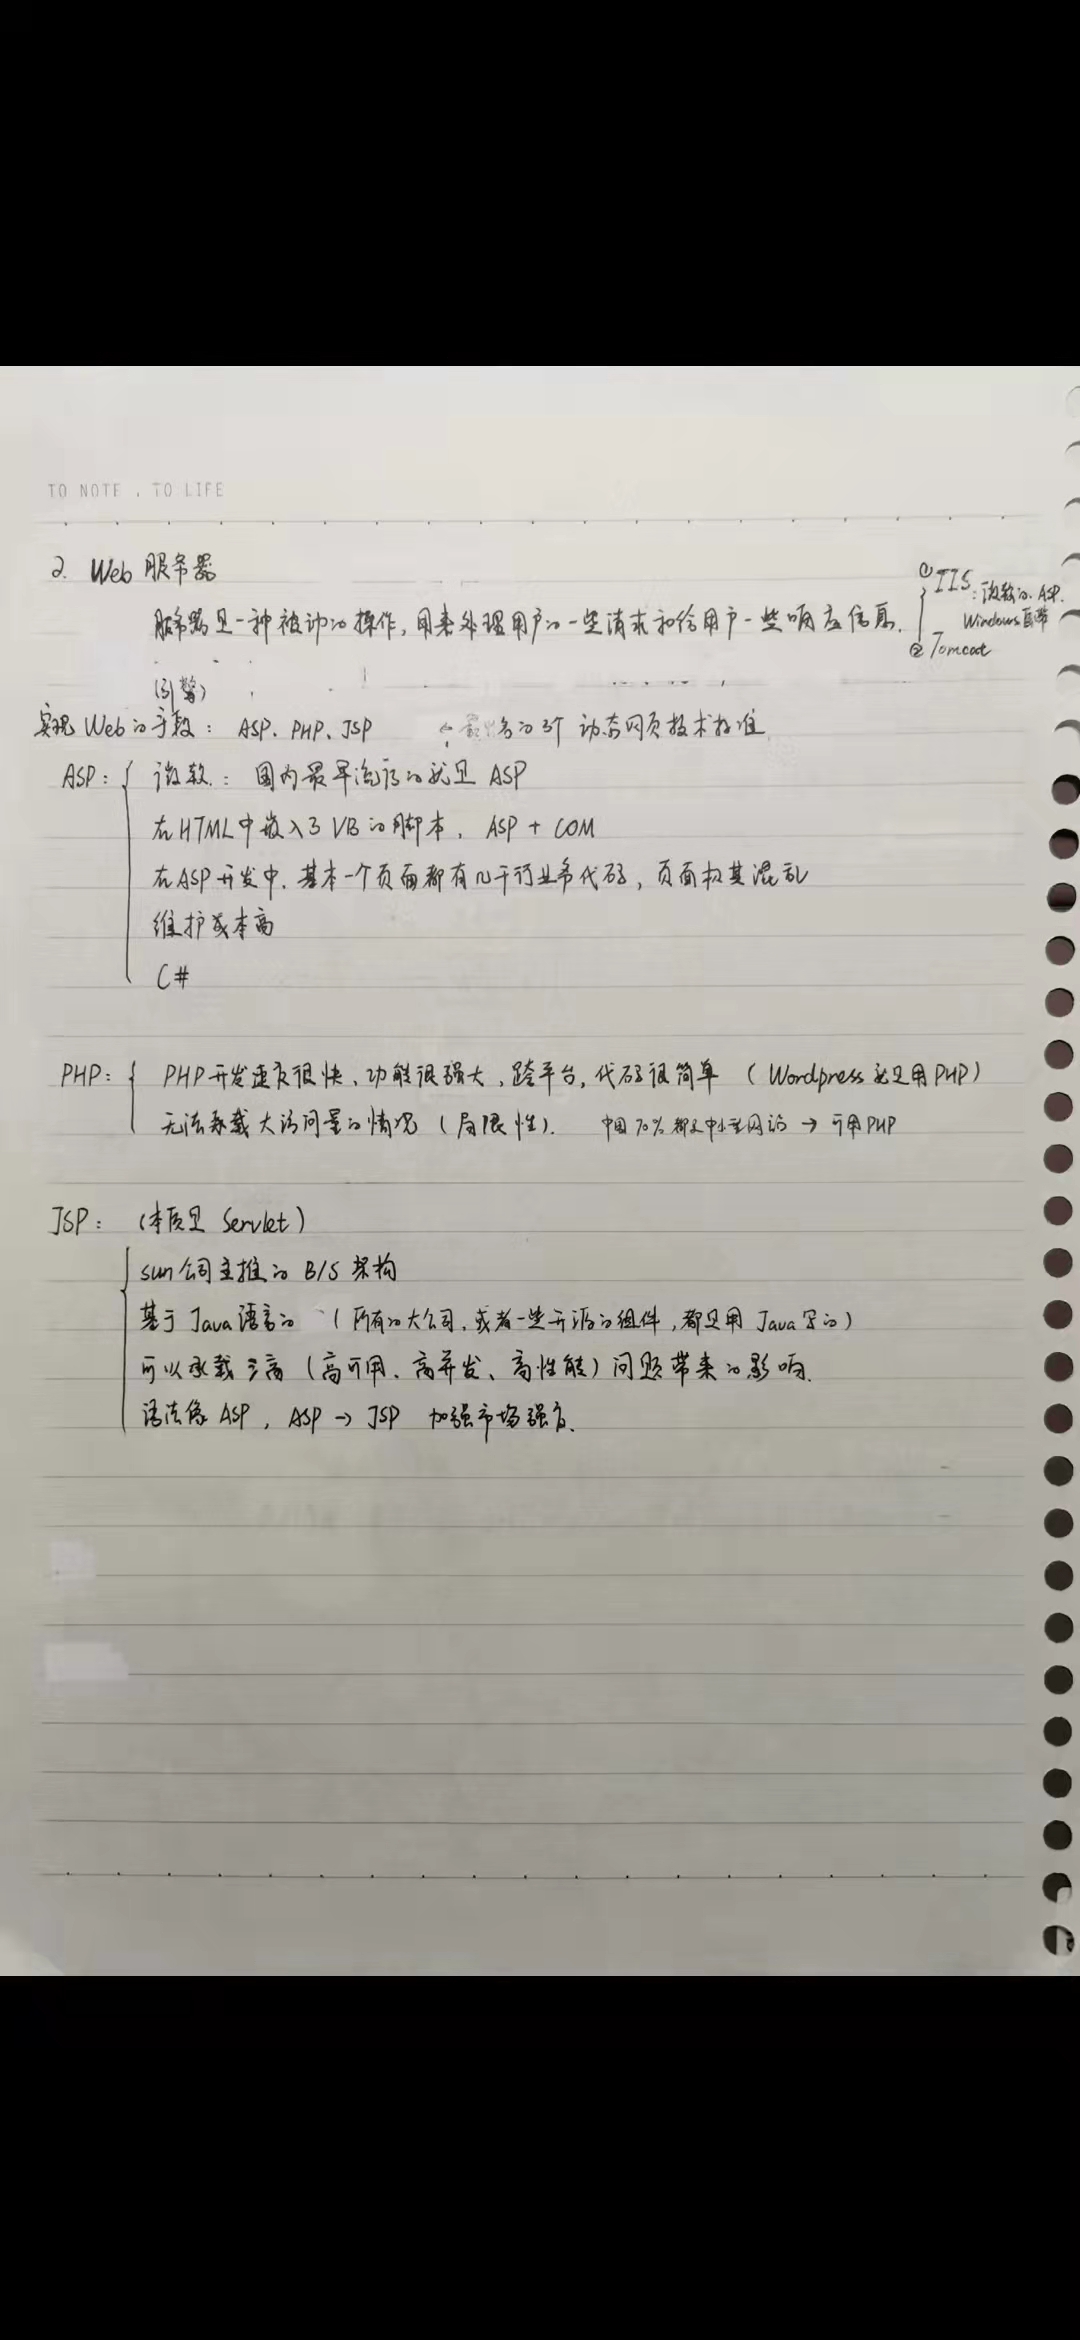 TO NOTE . TO LIFE
2. Web 服务器
① IIS：微软的. ASP.
Windows自带
② Tomcat
服务器是一种被动的操作, 用来处理用户的一些请求和给用户一些响应信息.
(引擎)
实现 Web的手段： ASP. PHP. JSP ← 的3个 动态网页技术标准
ASP： 微软： 国内最早流行的就是 ASP
在HTML中嵌入了VB的脚本, ASP + COM
在ASP开发中. 基本一个页面都有几千行业务代码, 页面极其混乱
维护成本高
C#
PHP： PHP开发速度很快, 功能很强大, 跨平台, 代码很简单 (Wordpress就是用PHP)
无法承载大访问量的情况 (局限性). 中国70%都是中小型网站 → 可用PHP
JSP： (本质是 Servlet)
sun公司主推的 B/S 架构
基于 Java语言的 (所有的大公司, 或者一些开源的组件, 都是用 Java 写的)
可以承载三高 (高可用、高并发、高性能) 问题带来的影响.
语法像 ASP, ASP → JSP 加强市场强度.